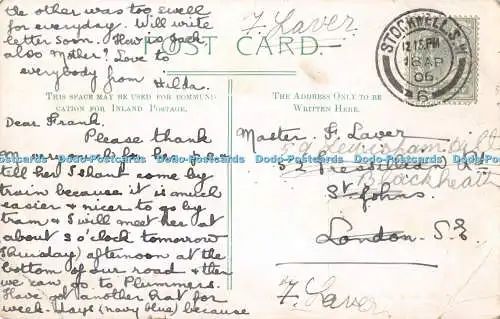 the other was too swell
for everyday. Will write
letter soon. How is Jack
also Mother? Love to
everybody from
Hilda.
F. Laver
POST CARD.
STOCKWELL S.W.
12.15 PM
18 AP
06
6
THIS SPACE MAY BE USED FOR COMMUNI-
CATION FOR INLAND POSTAGE.
THE ADDRESS ONLY TO BE
WRITTEN HERE.
Dear Frank.
Please thank
tell her I shant come by
train because it is much
easier & nicer to go by
tram & I will meet her at
about 3 o'clock tomorrow
(Thursday) afternoon at the
bottom of our road & then
we can go to Plummers.
Have got another hat for
week-days (navy blue) because
Master F. Laver
59 Lewisham Hill
52
Blackheath
St Johns
London. S.E.
F. Laver
Dodo-Postcards Dodo-Postcards Dodo-Postcards Dodo-Postcards Dodo-Postcards